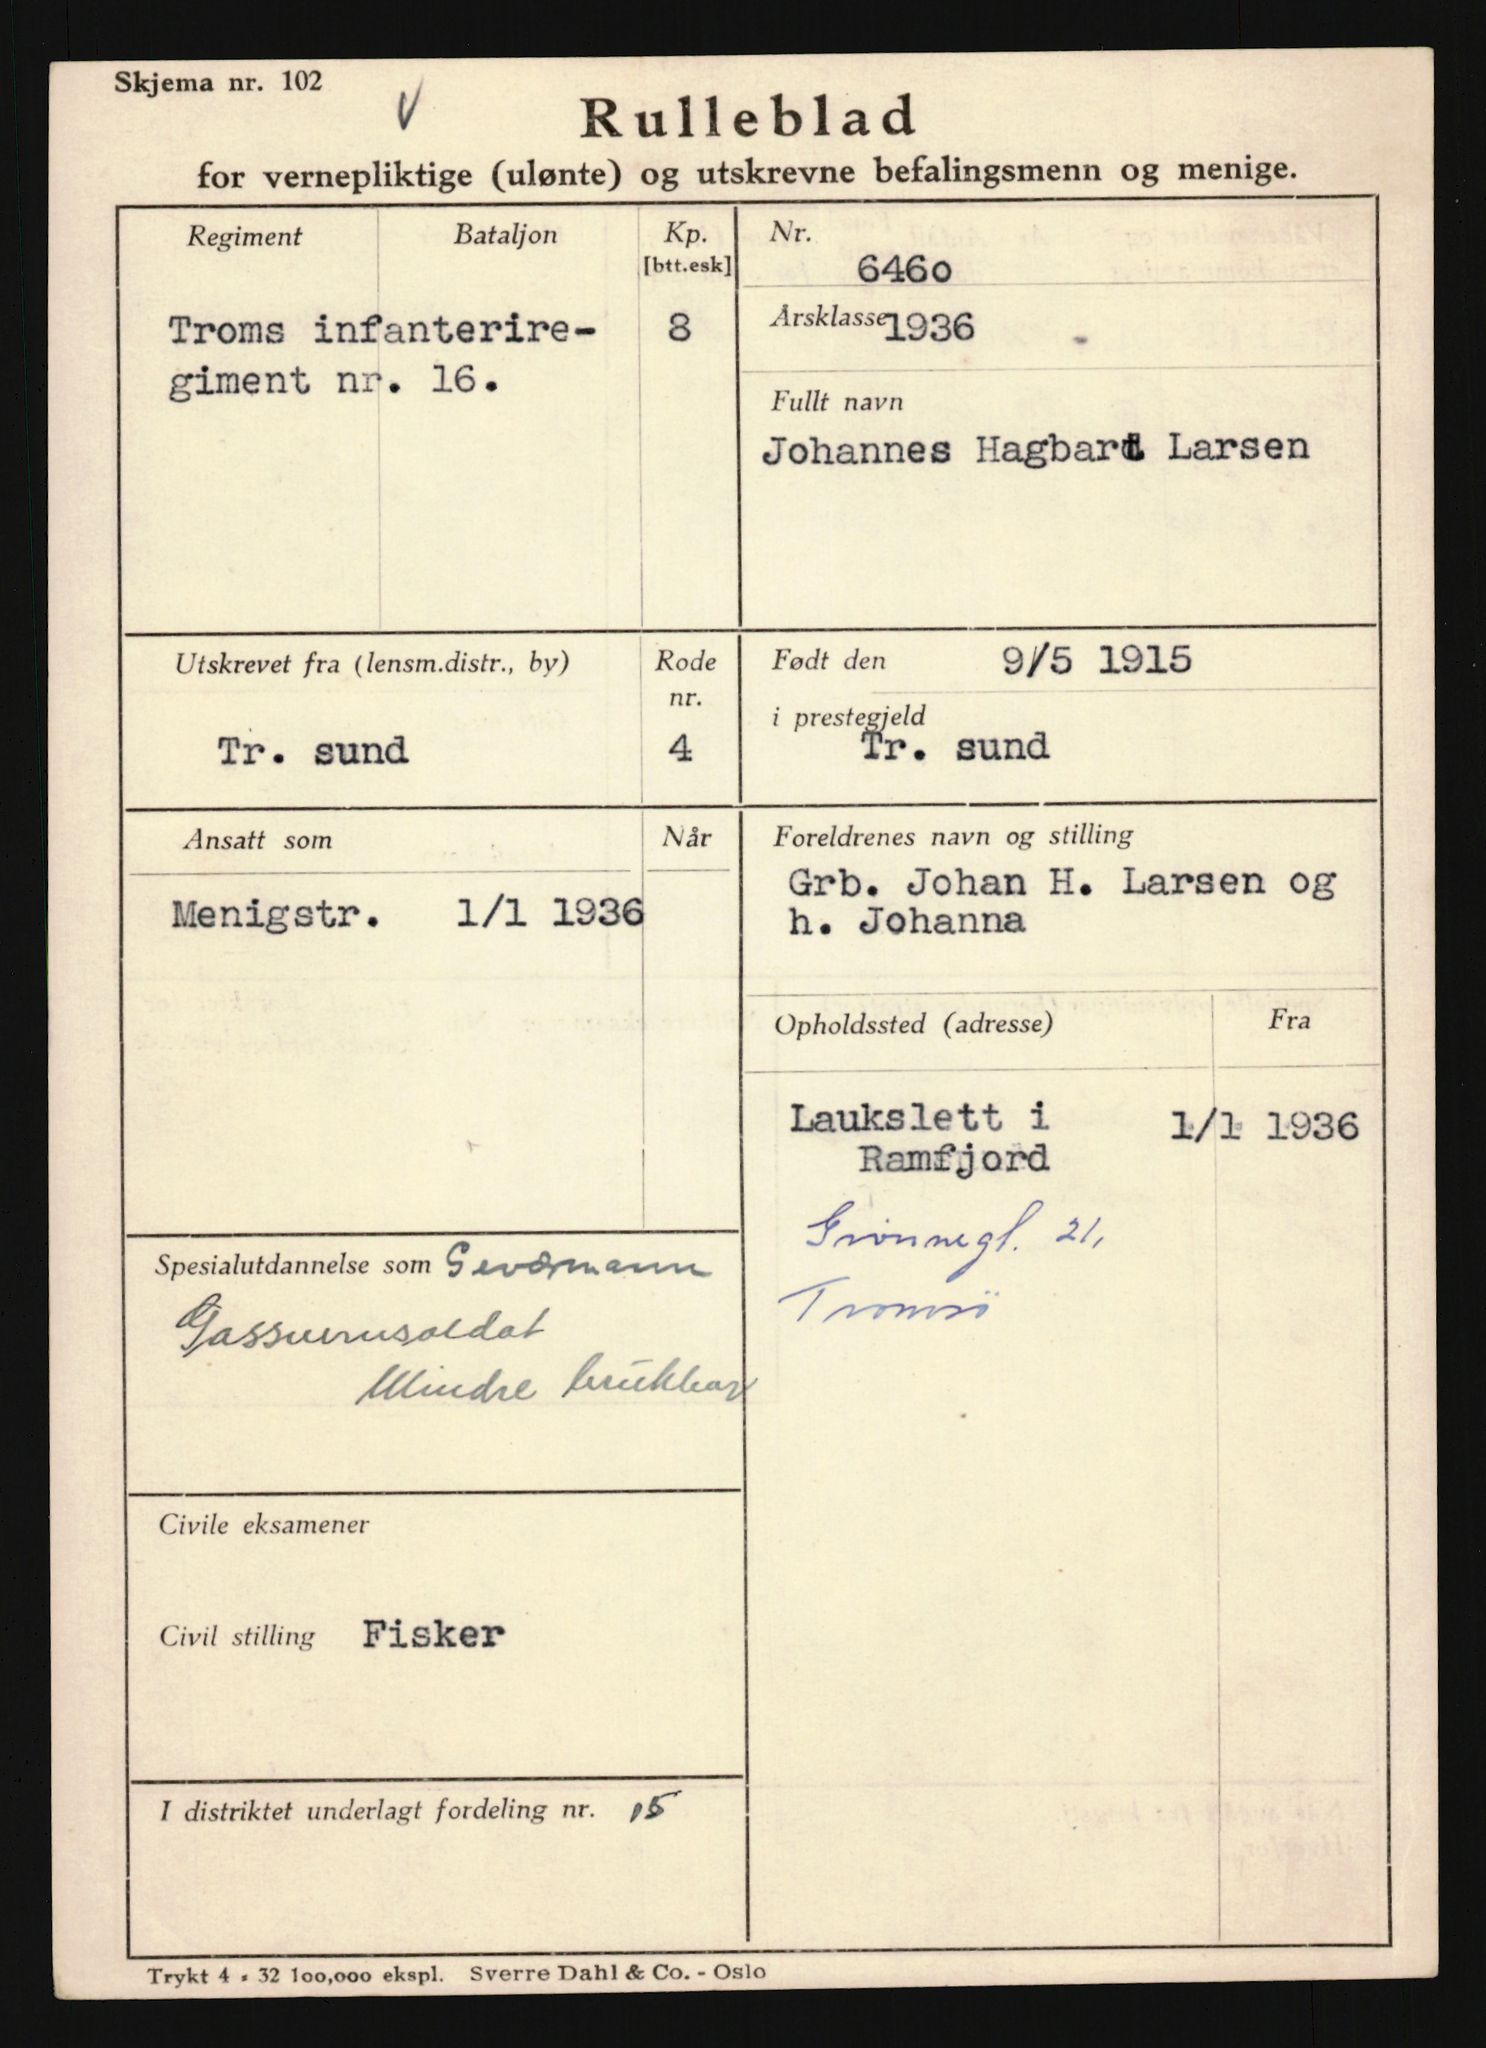 Skjema nr. 102
V
Rulleblad
for vernepliktige (ulønte) og utskrevne befalingsmenn og menige.
Regiment Bataljon Kp. [btt.esk]
Troms infanterire- 8
giment nr. 16.
Nr. 6460
Årsklasse 1936
Fullt navn
Johannes Hagbart Larsen
Utskrevet fra (lensm.distr., by) Rode nr.
Tr. sund 4
Født den 9/5 1915
i prestegjeld
Tr. sund
Ansatt som Når
Menigstr. 1/1 1936
Foreldrenes navn og stilling
Grb. Johan H. Larsen og
h. Johanna
Opholdssted (adresse) Fra
Laukslett i 1/1 1936
Ramfjord
Grønnegt. 21,
Tromsö
Spesialutdannelse som Geværmann
Gassvernsoldat
Mindre brukbar
Civile eksamener
Civil stilling Fisker
I distriktet underlagt fordeling nr. 15
Trykt 4 - 32 100,000 ekspl. Sverre Dahl & Co. - Oslo